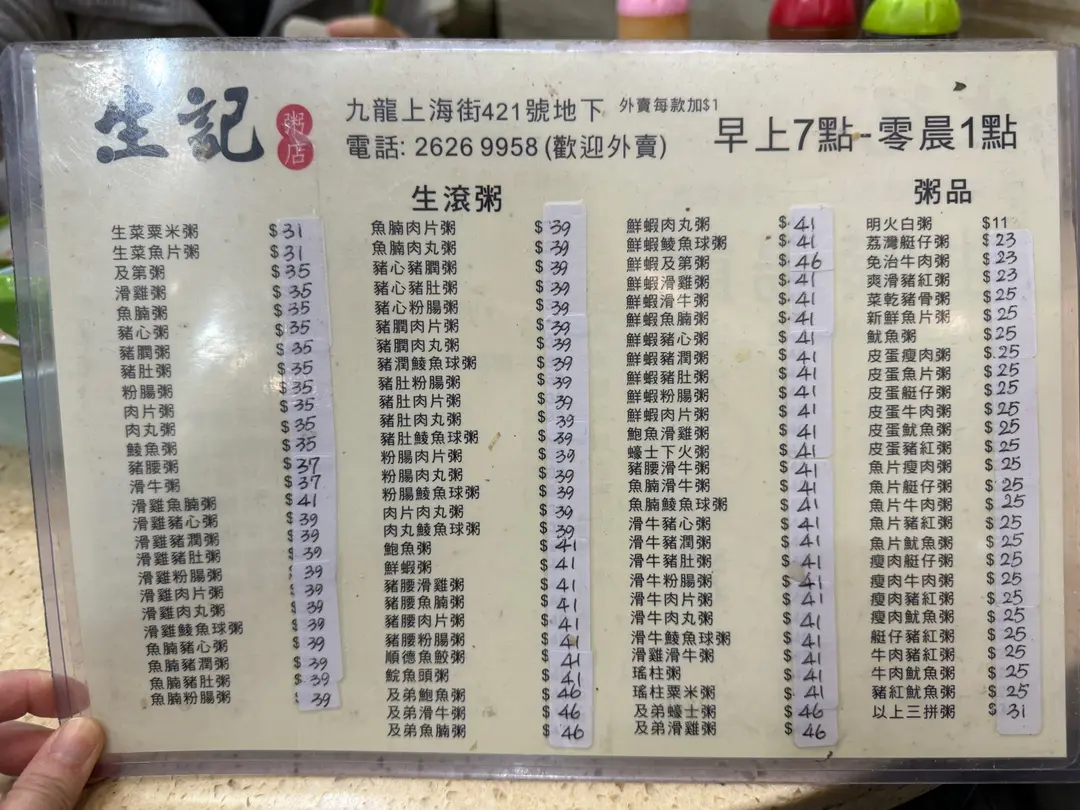 生記
粥店
九龍上海街421號地下 外賣每款加$1
電話: 2626 9958 (歡迎外賣)
早上7點-零晨1點
生滾粥
生菜粟米粥 $31
生菜魚片粥 $31
及第粥 $35
滑雞粥 $35
魚腩粥 $35
豬心粥 $35
豬膶粥 $35
豬肚粥 $35
粉腸粥 $35
肉片粥 $35
肉丸粥 $35
鯪魚粥 $35
豬腰粥 $37
滑牛粥 $37
滑雞魚腩粥 $41
滑雞豬心粥 $39
滑雞豬潤粥 $39
滑雞豬肚粥 $39
滑雞粉腸粥 $39
滑雞肉片粥 $39
滑雞肉丸粥 $39
滑雞鯪魚球粥 $39
魚腩豬心粥 $39
魚腩豬潤粥 $39
魚腩豬肚粥 $39
魚腩粉腸粥 $39
魚腩肉片粥 $39
魚腩肉丸粥 $39
豬心豬膶粥 $39
豬心豬肚粥 $39
豬心粉腸粥 $39
豬膶肉片粥 $39
豬膶肉丸粥 $39
豬潤鯪魚球粥 $39
豬肚粉腸粥 $39
豬肚肉片粥 $39
豬肚肉丸粥 $39
豬肚鯪魚球粥 $39
粉腸肉片粥 $39
粉腸肉丸粥 $39
粉腸鯪魚球粥 $39
肉片肉丸粥 $39
肉丸鯪魚球粥 $39
鮑魚粥 $41
鮮蝦粥 $41
豬腰滑雞粥 $41
豬腰魚腩粥 $41
豬腰肉片粥 $41
豬腰粉腸粥 $41
順德魚餃粥 $41
鯇魚頭粥 $41
及弟鮑魚粥 $46
及弟滑牛粥 $46
及弟魚腩粥 $46
鮮蝦肉丸粥 $41
鮮蝦鯪魚球粥 $41
鮮蝦及第粥 $46
鮮蝦滑雞粥 $41
鮮蝦滑牛粥 $41
鮮蝦魚腩粥 $41
鮮蝦豬心粥 $41
鮮蝦豬潤粥 $41
鮮蝦豬肚粥 $41
鮮蝦粉腸粥 $41
鮮蝦肉片粥 $41
鮑魚滑雞粥 $41
蠔士下火粥 $41
豬腰滑牛粥 $41
魚腩滑牛粥 $41
魚腩鯪魚球粥 $41
滑牛豬心粥 $41
滑牛豬潤粥 $41
滑牛豬肚粥 $41
滑牛粉腸粥 $41
滑牛肉片粥 $41
滑牛肉丸粥 $41
滑牛鯪魚球粥 $41
滑雞滑牛粥 $41
瑤柱粥 $41
瑤柱粟米粥 $41
及弟蠔士粥 $46
及弟滑雞粥 $46
粥品
明火白粥 $11
荔灣艇仔粥 $23
免治牛肉粥 $23
爽滑豬紅粥 $23
菜乾豬骨粥 $25
新鮮魚片粥 $25
魷魚粥 $25
皮蛋瘦肉粥 $25
皮蛋魚片粥 $25
皮蛋艇仔粥 $25
皮蛋牛肉粥 $25
皮蛋魷魚粥 $25
皮蛋豬紅粥 $25
魚片瘦肉粥 $25
魚片艇仔粥 $25
魚片牛肉粥 $25
魚片豬紅粥 $25
魚片魷魚粥 $25
瘦肉艇仔粥 $25
瘦肉牛肉粥 $25
瘦肉豬紅粥 $25
瘦肉魷魚粥 $25
艇仔豬紅粥 $25
牛肉豬紅粥 $25
牛肉魷魚粥 $25
豬紅魷魚粥 $25
以上三拼粥 $31